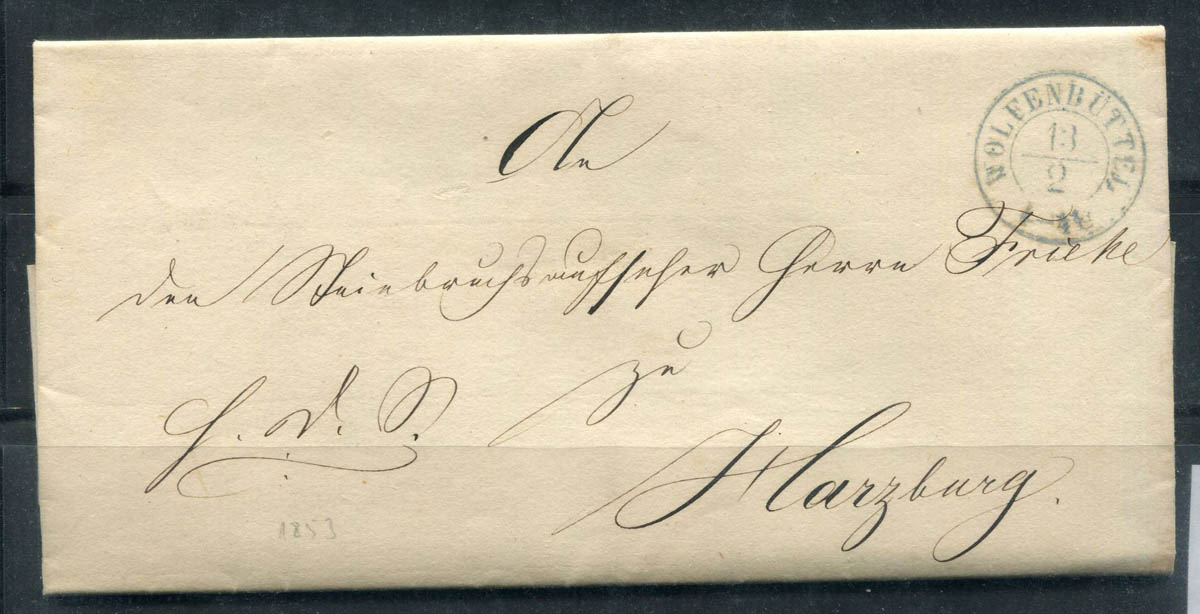 WOLFENBÜTTEL
13
2
An
den Steinbruchsaufseher Herrn Fricke
zu
H. D. S.
Harzburg.
1853